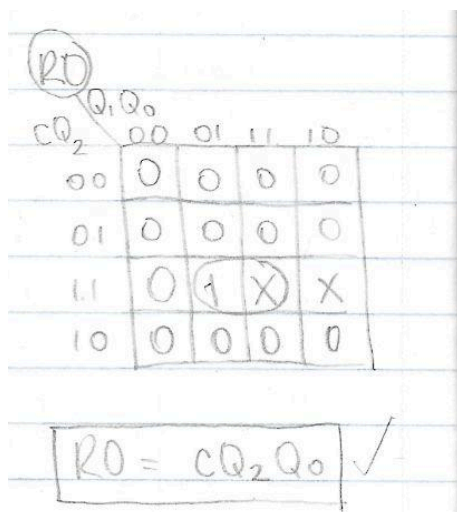 RO
Q₁Q₀
CQ₂ 00 01 11 10
00 0 0 0 0
01 0 0 0 0
11 0 1 X X
10 0 0 0 0
RO = CQ₂Q₀ ✓